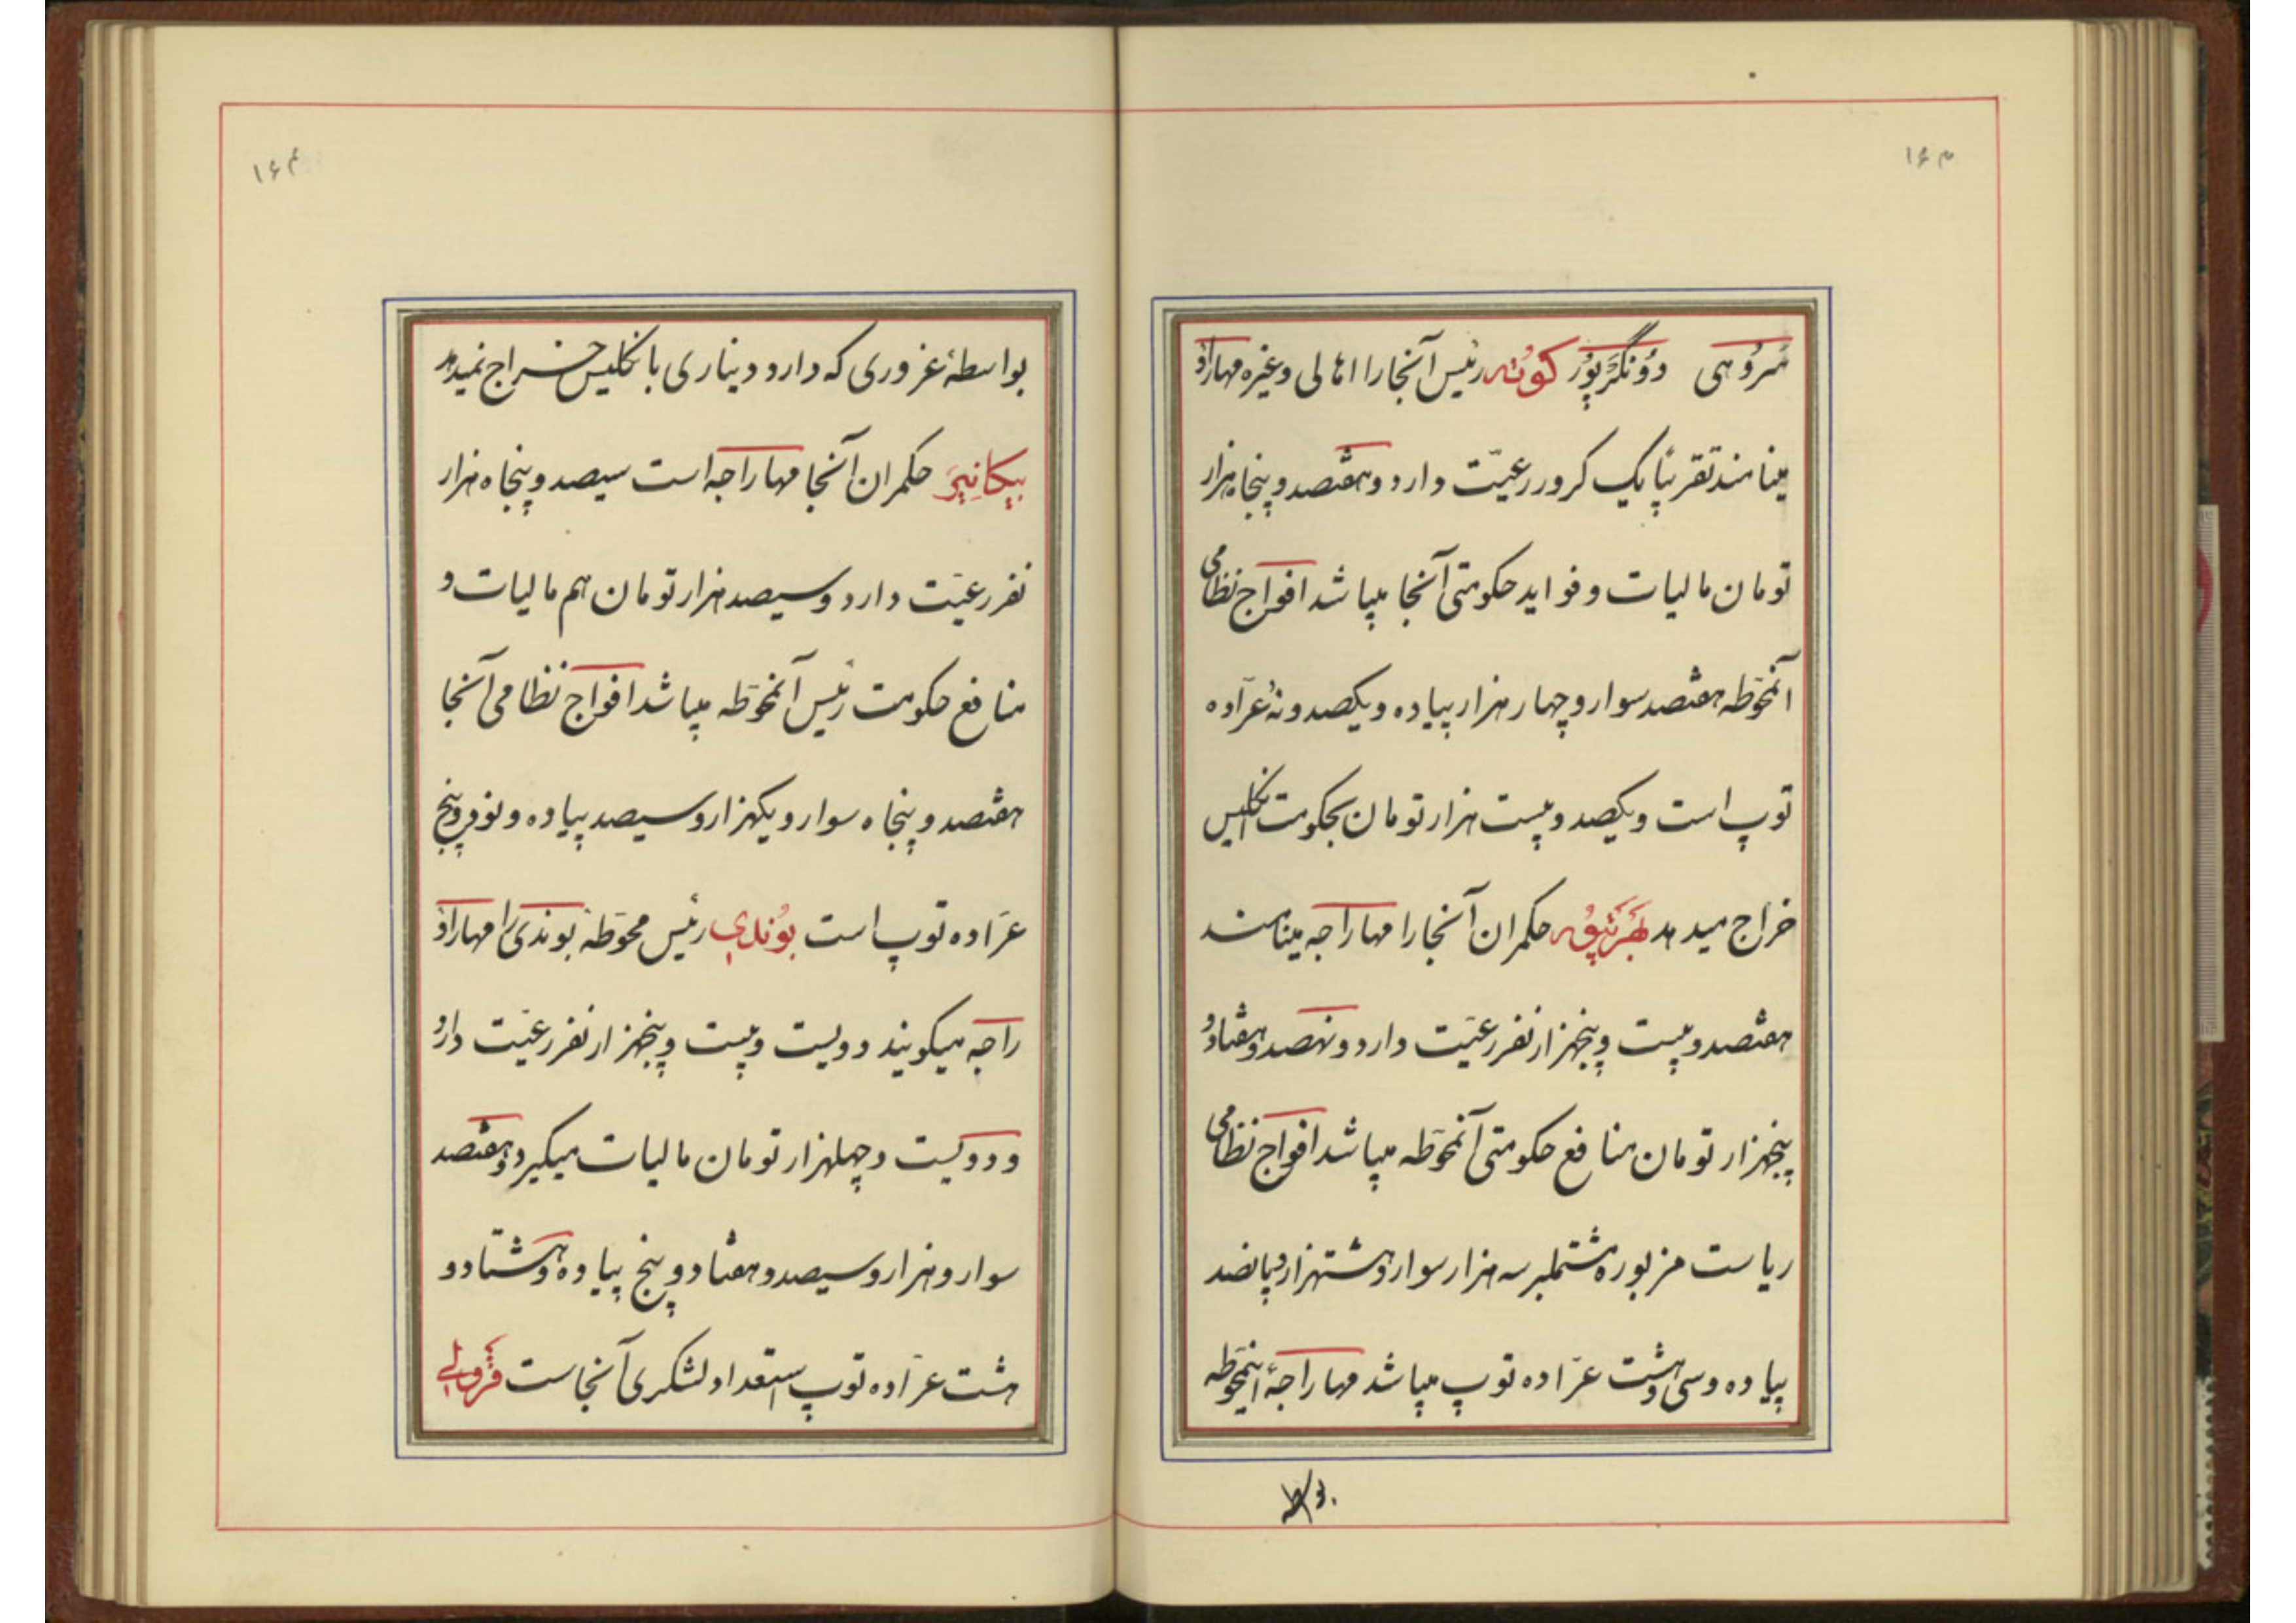 ۱۶۳
سُرُوهی دُونگَرپُور کُوتَه رئیس آنجارا اهالی وغیره مهاراؤ
مینامند تقریباً یک کرور رعیّت دارد و هفتصد و پنجاه هزار
تومان مالیات و فواید حکومتی آنجا میباشد افواج نظامی
آنمحوّطه هفتصد سوار و چهار هزار پیاده و یکصد و نُه عرّاده
توپ است و یکصد و بیست هزار تومان بحکومت انگلیس
خراج میدهد بَهَرتپُور حکمران آنجارا مهاراجه مینامند
هفتصد و بیست و پنجهزار نفر رعیّت دارد و نهصد و هفتاد و
پنجهزار تومان منافع حکومتی آنمحوّطه میباشد افواج نظامی
ریاست مزبوره مشتملبر سه هزار سوار و هشتهزار و پانصد
پیاده و سی و هشت عرّاده توپ میباشد مهاراجهٔ اینمحوّطه
بواسطه
۱۶۴
بواسطهٔ غروری که دارد دیناری بانگلیس خراج نمیدهد
بیکانیَر حکمران آنجا مهاراجه است سیصد و پنجاه هزار
نفر رعیّت دارد و سیصد هزار تومان هم مالیات و
منافع حکومت رئیس آنمحوّطه میباشد افواج نظامی آنجا
هفتصد و پنجاه سوار و یکهزار و سیصد پیاده و نود و پنج
عرّاده توپ است بُوندی رئیس محوّطهٔ بوندی را مهاراؤ
راجه میگویند دویست و بیست و پنجهزار نفر رعیّت دارد
و دویست و چهلهزار تومان مالیات میگیرد و هفتصد
سوار و هزار و سیصد و هفتاد و پنج پیاده و هشتاد و
هشت عرّاده توپ استعداد لشکری آنجاست قَرَولی